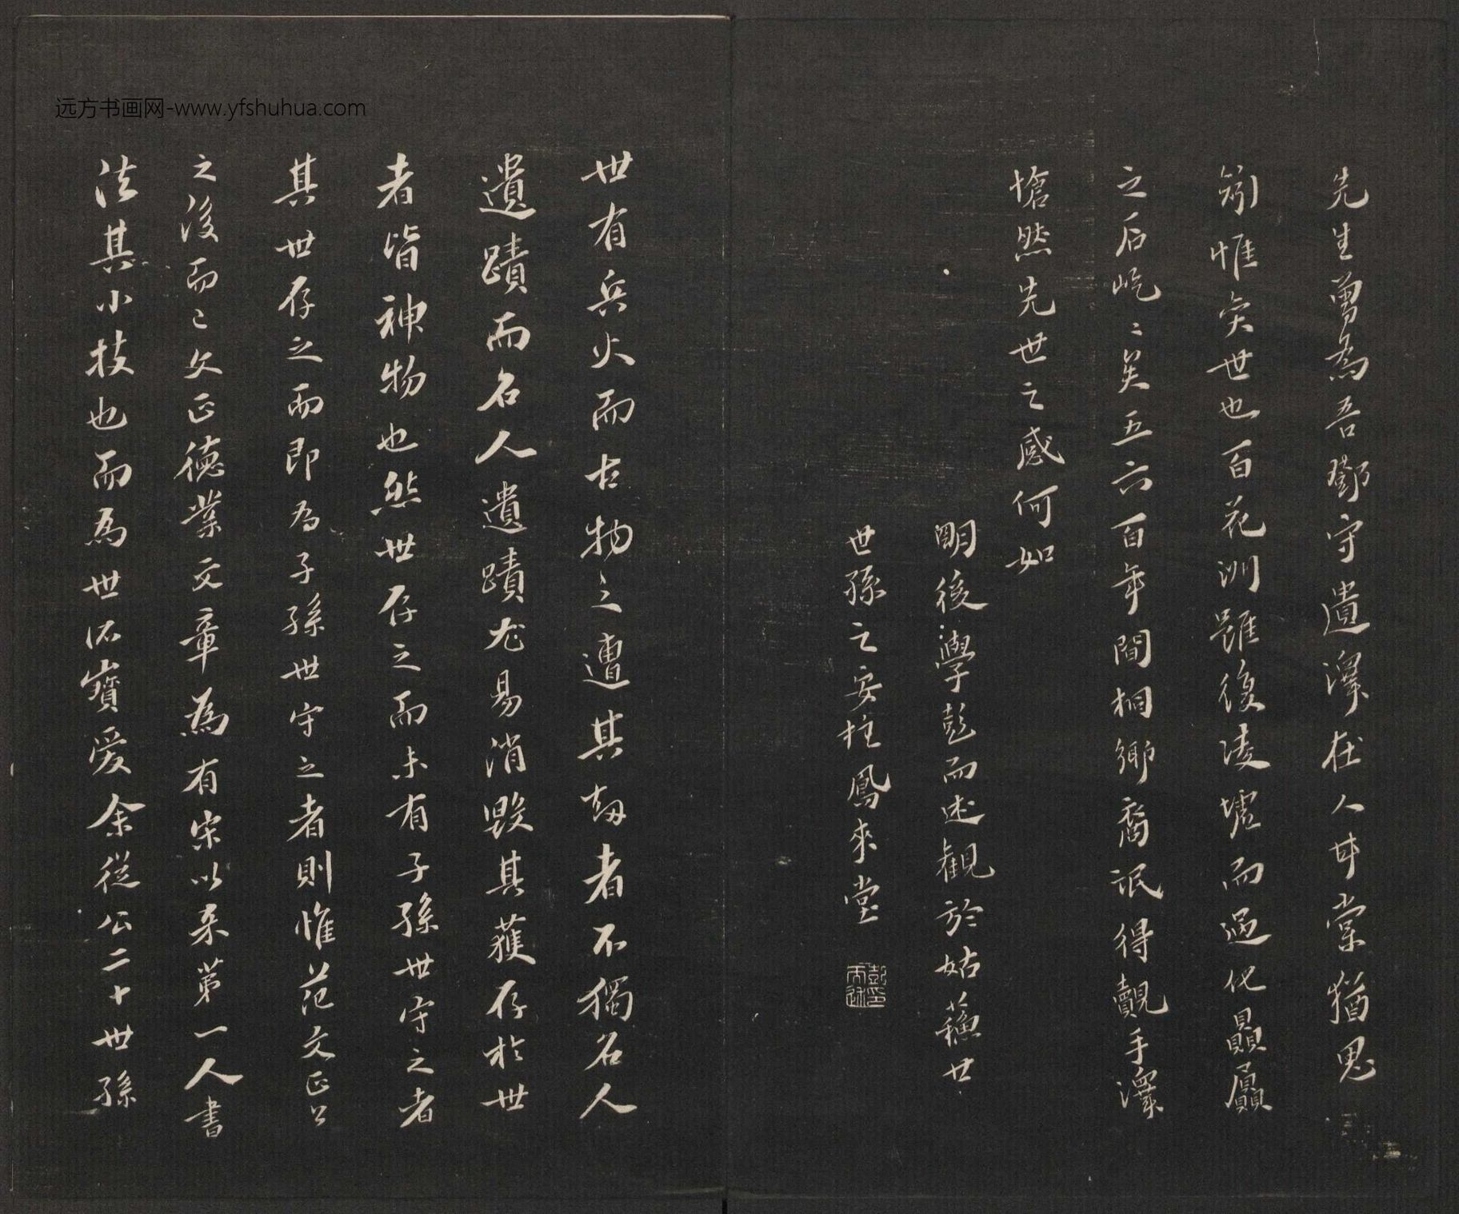 远方书画网-www.yfshuhua.com
先生曽為吾鄧守遺澤在人甘棠猶思
惟矣世也百花洲雖復淩墟而過化贔屭
之后屹〻矣五六百年間桐鄉裔氓得覩手澤
愴然先世之感何如
明後學彭而述觀於姑蘓世
世孫之安抂鳳來堂
彭而述印
世有兵火而古物之遭其劫者不獨名人
遺蹟而名人遺蹟尤易消毀其蒦存於世
者皆神物也然世存之而未有子孫世守之者
其世存之而即為子孫世守之者則惟范文正公
之後而已文正德業文章為有宋以来第一人書
法其小技也而為世所寶爱余從公二十世孫